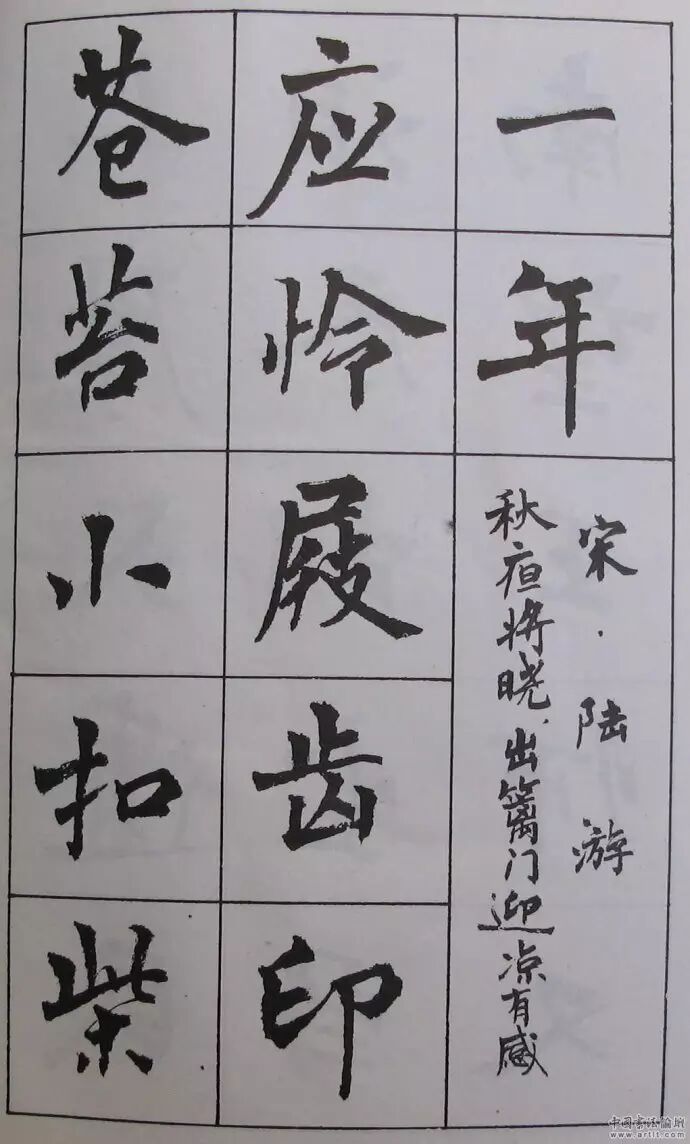 一年
宋·陆游
秋夜将晓出篱门迎凉有感
应怜屐齿印
苍苔小扣柴
中国书法论坛
www.artit.com